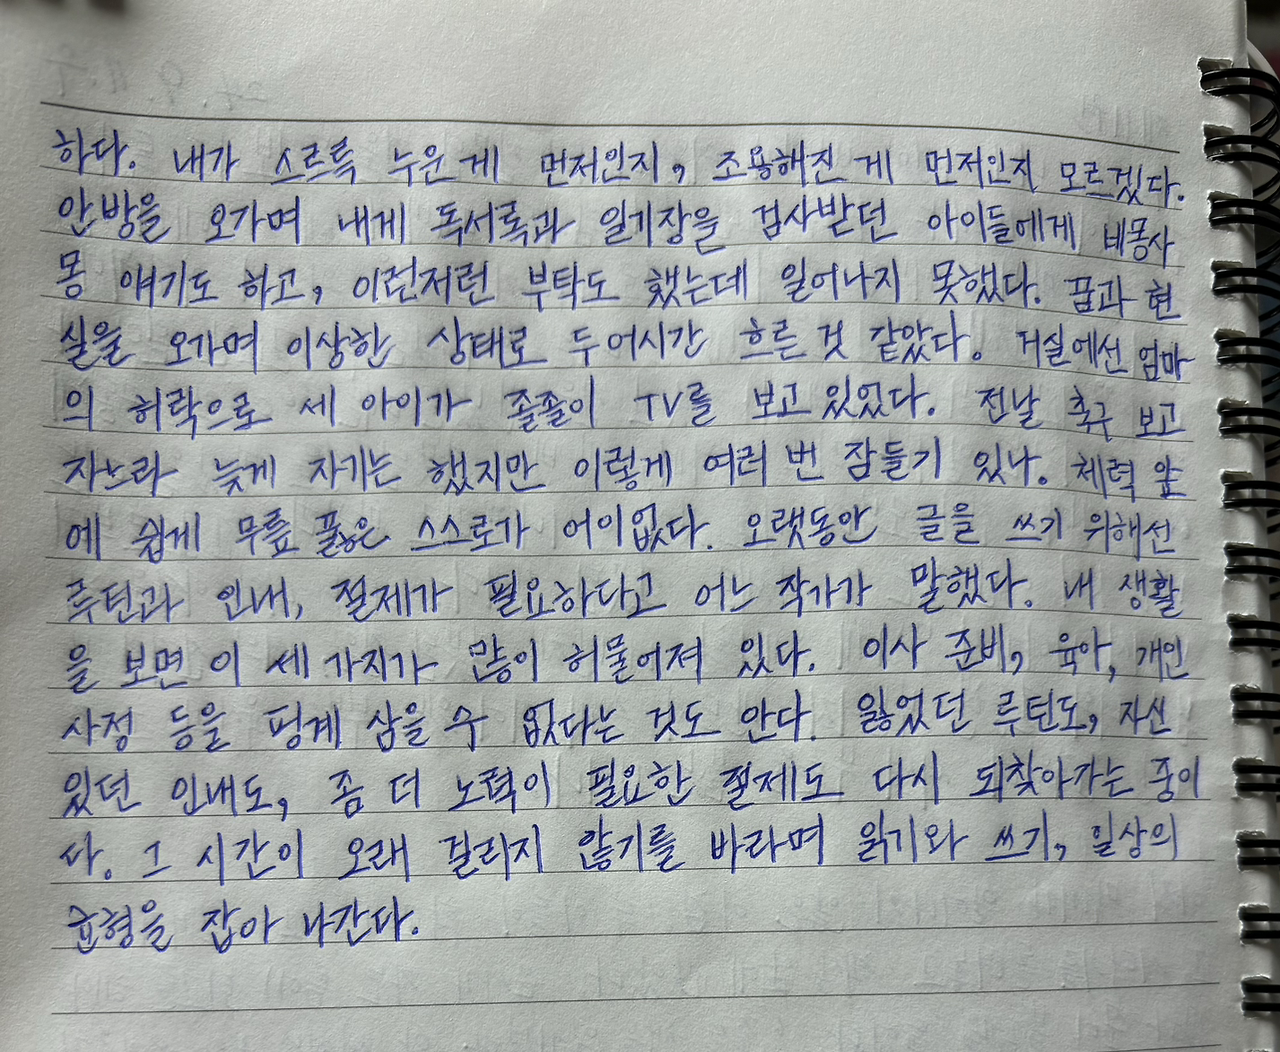 하다. 내가 스르륵 누운 게 먼저인지, 조용해진 게 먼저인지 모르겠다.
안방을 오가며 내게 독서록과 일기장을 검사받던 아이들에게 비몽사
몽 얘기도 하고, 이런저런 부탁도 했는데 일어나지 못했다. 꿈과 현
실을 오가며 이상한 상태로 두어시간 흐른 것 같았다. 거실에선 엄마
의 허락으로 세 아이가 졸졸이 TV를 보고 있었다. 전날 축구 보고
자느라 늦게 자기는 했지만 이렇게 여러 번 잠들기 있나. 체력 앞
에 쉽게 무릎 꿇은 스스로가 어이없다. 오랫동안 글을 쓰기 위해선
루틴과 인내, 절제가 필요하다고 어느 작가가 말했다. 내 생활
을 보면 이 세 가지가 많이 허물어져 있다. 이사 준비, 육아, 개인
사정 등을 핑계 삼을 수 없다는 것도 안다. 잃었던 루틴도, 자신
있던 인내도, 좀 더 노력이 필요한 절제도 다시 되찾아가는 중이
다. 그 시간이 오래 걸리지 않기를 바라며 읽기와 쓰기, 일상의
균형을 잡아 나간다.